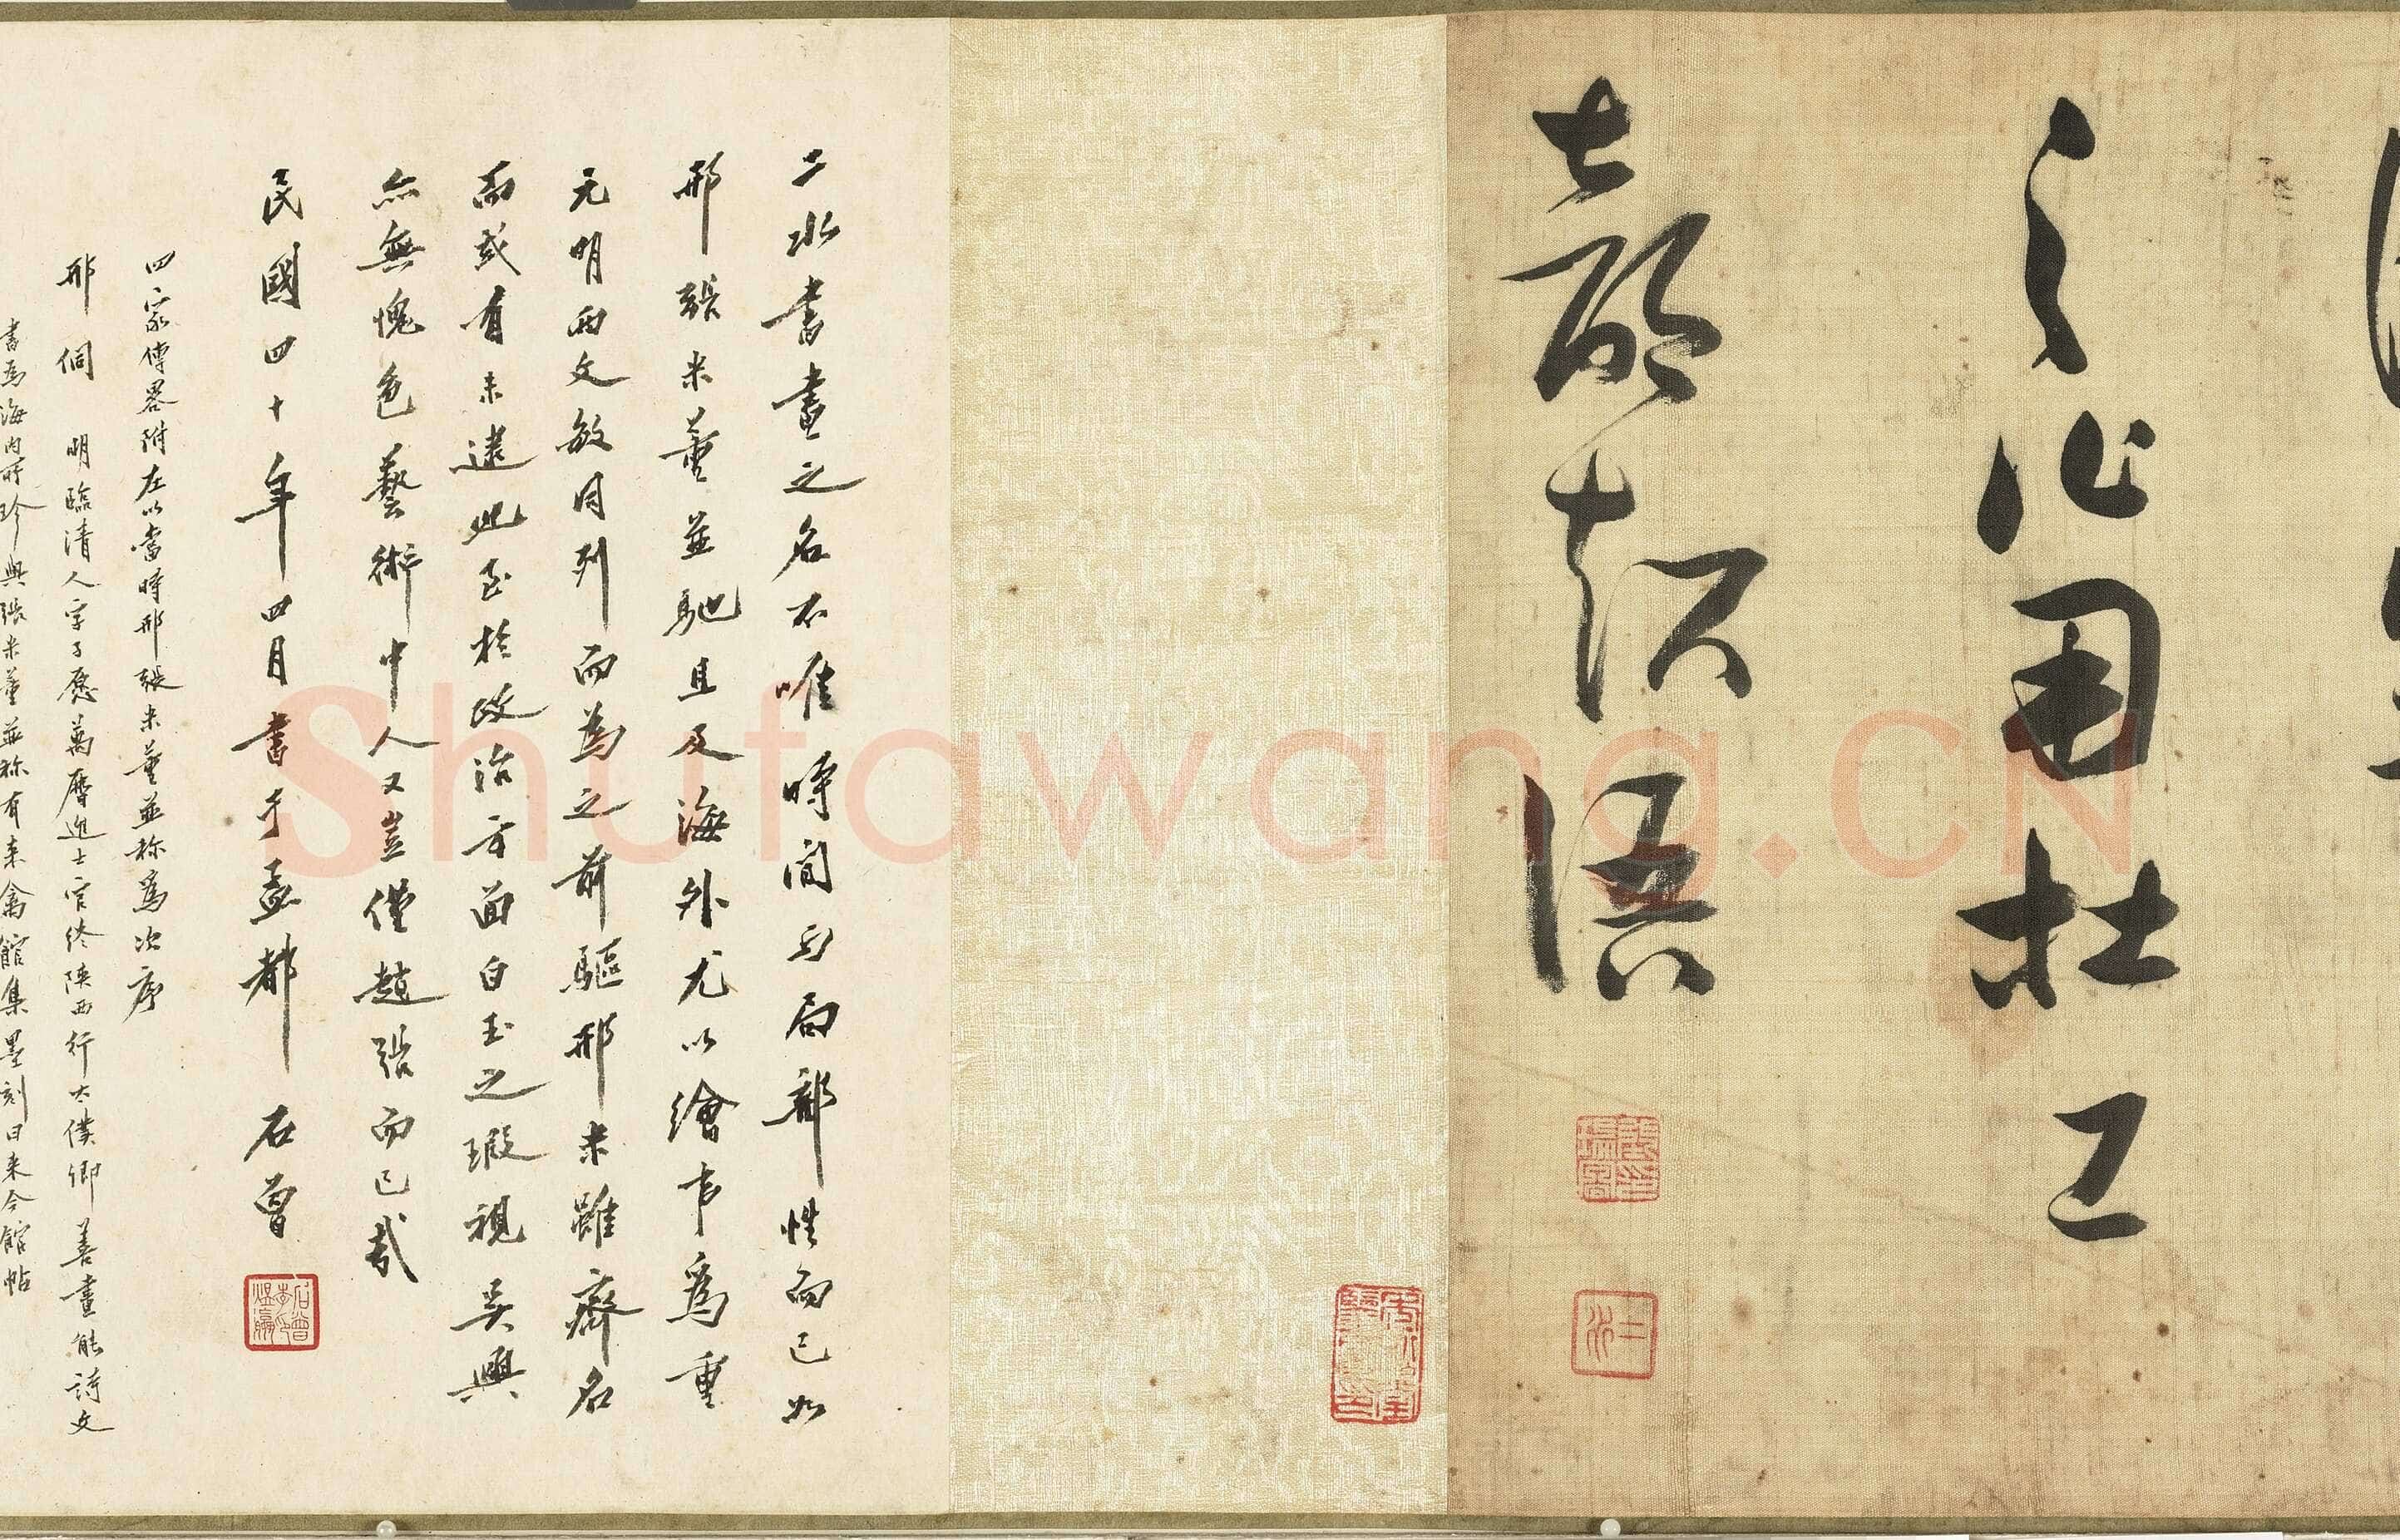 之作用杜工
部韻語
二水
二水書畫之名不唯時間与局部性而已如
邢張米董並馳且及海外尤以繪事為重
元明兩文敏同列而為之前驅邢米雖齊名
而或有未逮此至於政治方面白玉之瑕視吳興
亦無愧色藝術中人又豈僅趙張而已哉
民國四十年四月書于孟都 石曾
四家傳畧附左以當時邢張米董並称為次序
邢侗 明臨清人字子愿萬曆進士官終陝西行太僕卿善畫能詩文
書為海内所珍與張米董並称有来禽館集墨刻曰来今館帖
Shufawang.CN